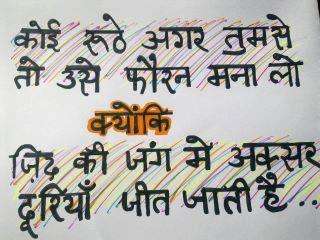 कोई रूठे अगर तुमसे
तो उसे फौरन मना लो
क्योंकि
ज़िद की जंग मे अक्सर
दूरियाँ जीत जाती है ..